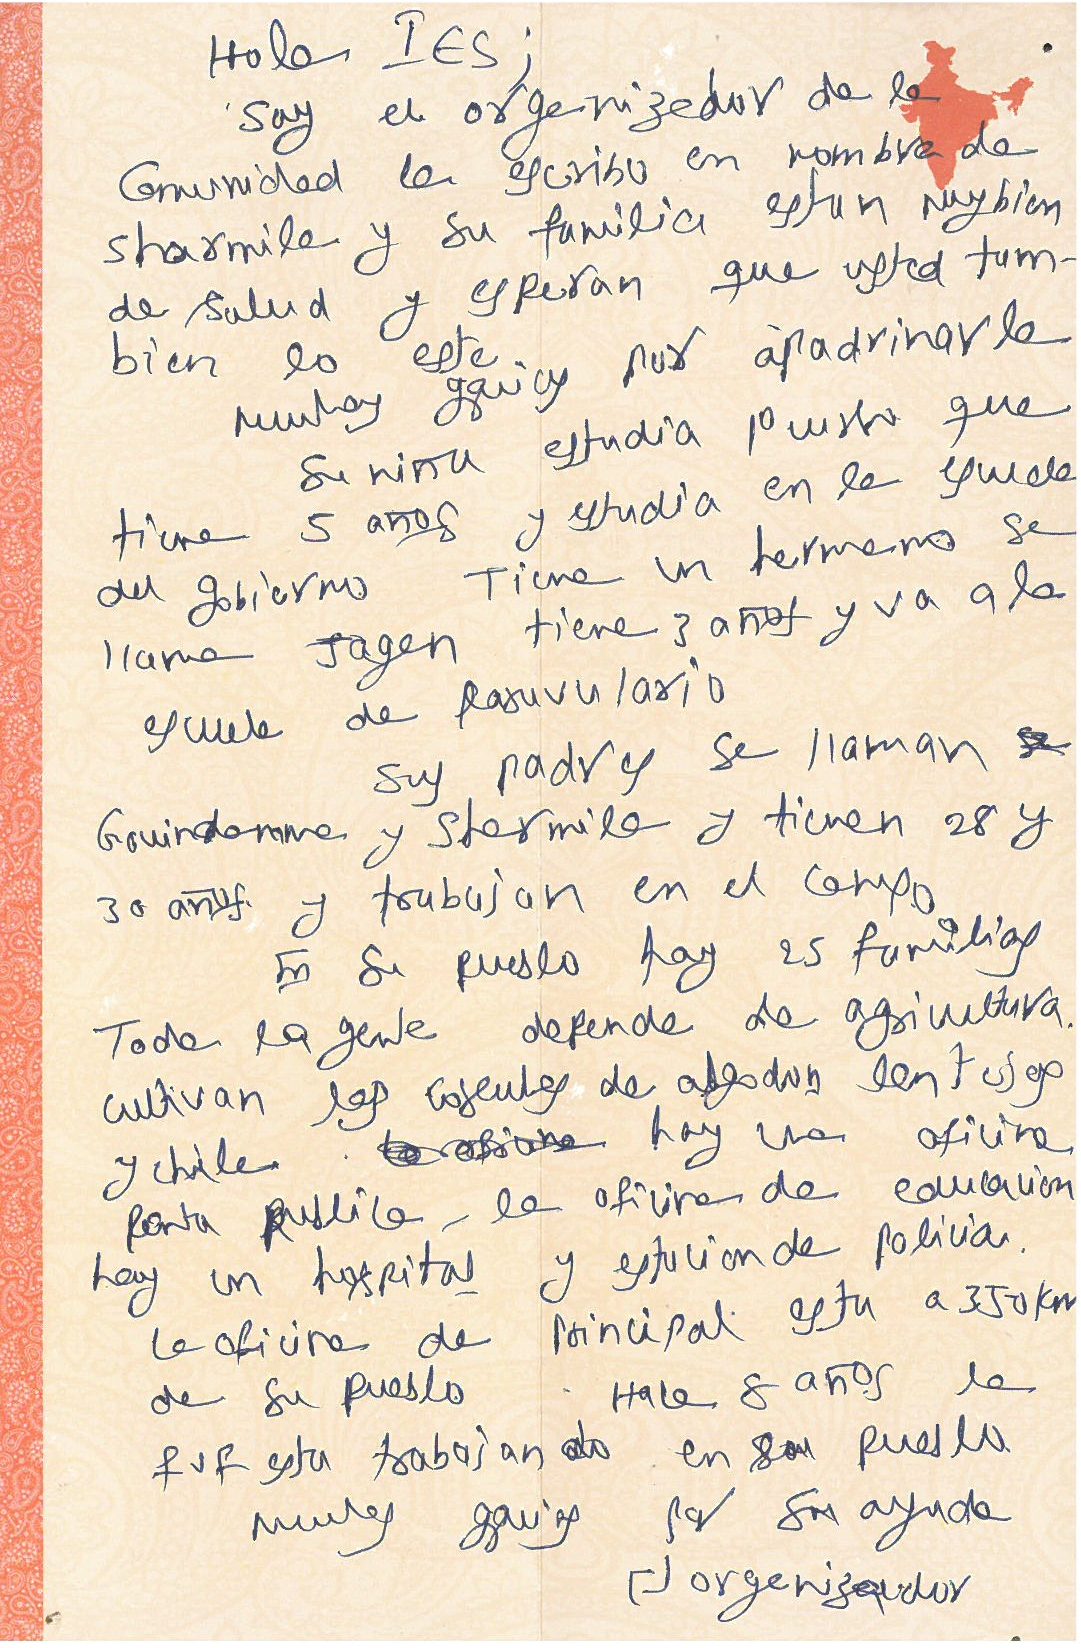 Hola IES;
Soy el organizador de la
Comunidad le escribo en nombre de
Sharmila y su familia estan muy bien
de salud y esperan que usted tam-
bien lo este.
muchas gracias por apadrinarla
Su niña estudia puesto que
tiene 5 años y estudia en la escuela
del gobierno Tiene un hermano se
llama Jagan tiene 3 años y va a la
escuela de parvulario
Sus padres se llaman
Govindamma y Sharmila y tienen 28 y
30 años. y trabajan en el campo
En su pueblo hay 25 familias
Toda la gente depende de agricultura.
cultivan las cosechas de algodon lentejas
y chile. hay una oficina
publica - la oficina de educacion
hay un hospital y estacion de policia.
La oficina de principal esta a 350 km
de su pueblo. Hace 8 años la
FVF esta trabajando en su pueblo
muchas gracias por su ayuda
El organizador